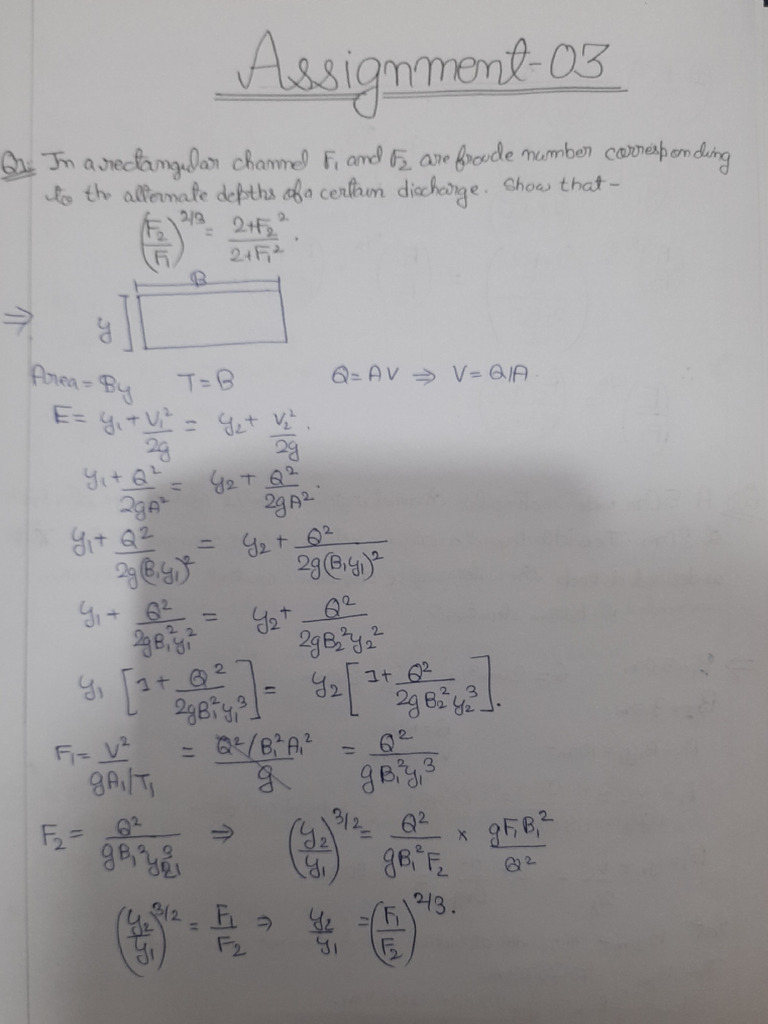 Assignment-03
Q1= In a rectangular channel F₁ and F₂ are froude number corresponding
to the alternate depths of a certain discharge. Show that -
(F₂/F₁)^2/3 = (2+F₂²)/(2+F₁²).
B
⇒ y
Area = By T=B Q=AV ⇒ V=Q/A
E= y₁+V₁²/2g = y₂+ V₂²/2g.
y₁+Q²/2gA² = y₂+ Q²/2gA².
y₁+ Q²/2g(B₁y₁)² = y₂+ Q²/2g(B₁y₁)²
y₁+ Q²/2gB₁²y₁² = y₂+ Q²/2gB₂²y₂²
y₁ [1+ Q²/2gB₁²y₁³] = y₂ [1+ Q²/2gB₂²y₂³].
F₁= V²/gA₁/T₁ = Q²/B₁²A₁²/g = Q²/gB₁²y₁³
F₂= Q²/gB₁²y₂³ ⇒ (y₂/y₁)^3/2 = Q²/gB₁²F₂ × gF₁B₁²/Q²
(y₂/y₁)^3/2 = F₁/F₂ ⇒ y₂/y₁ = (F₁/F₂)^2/3.